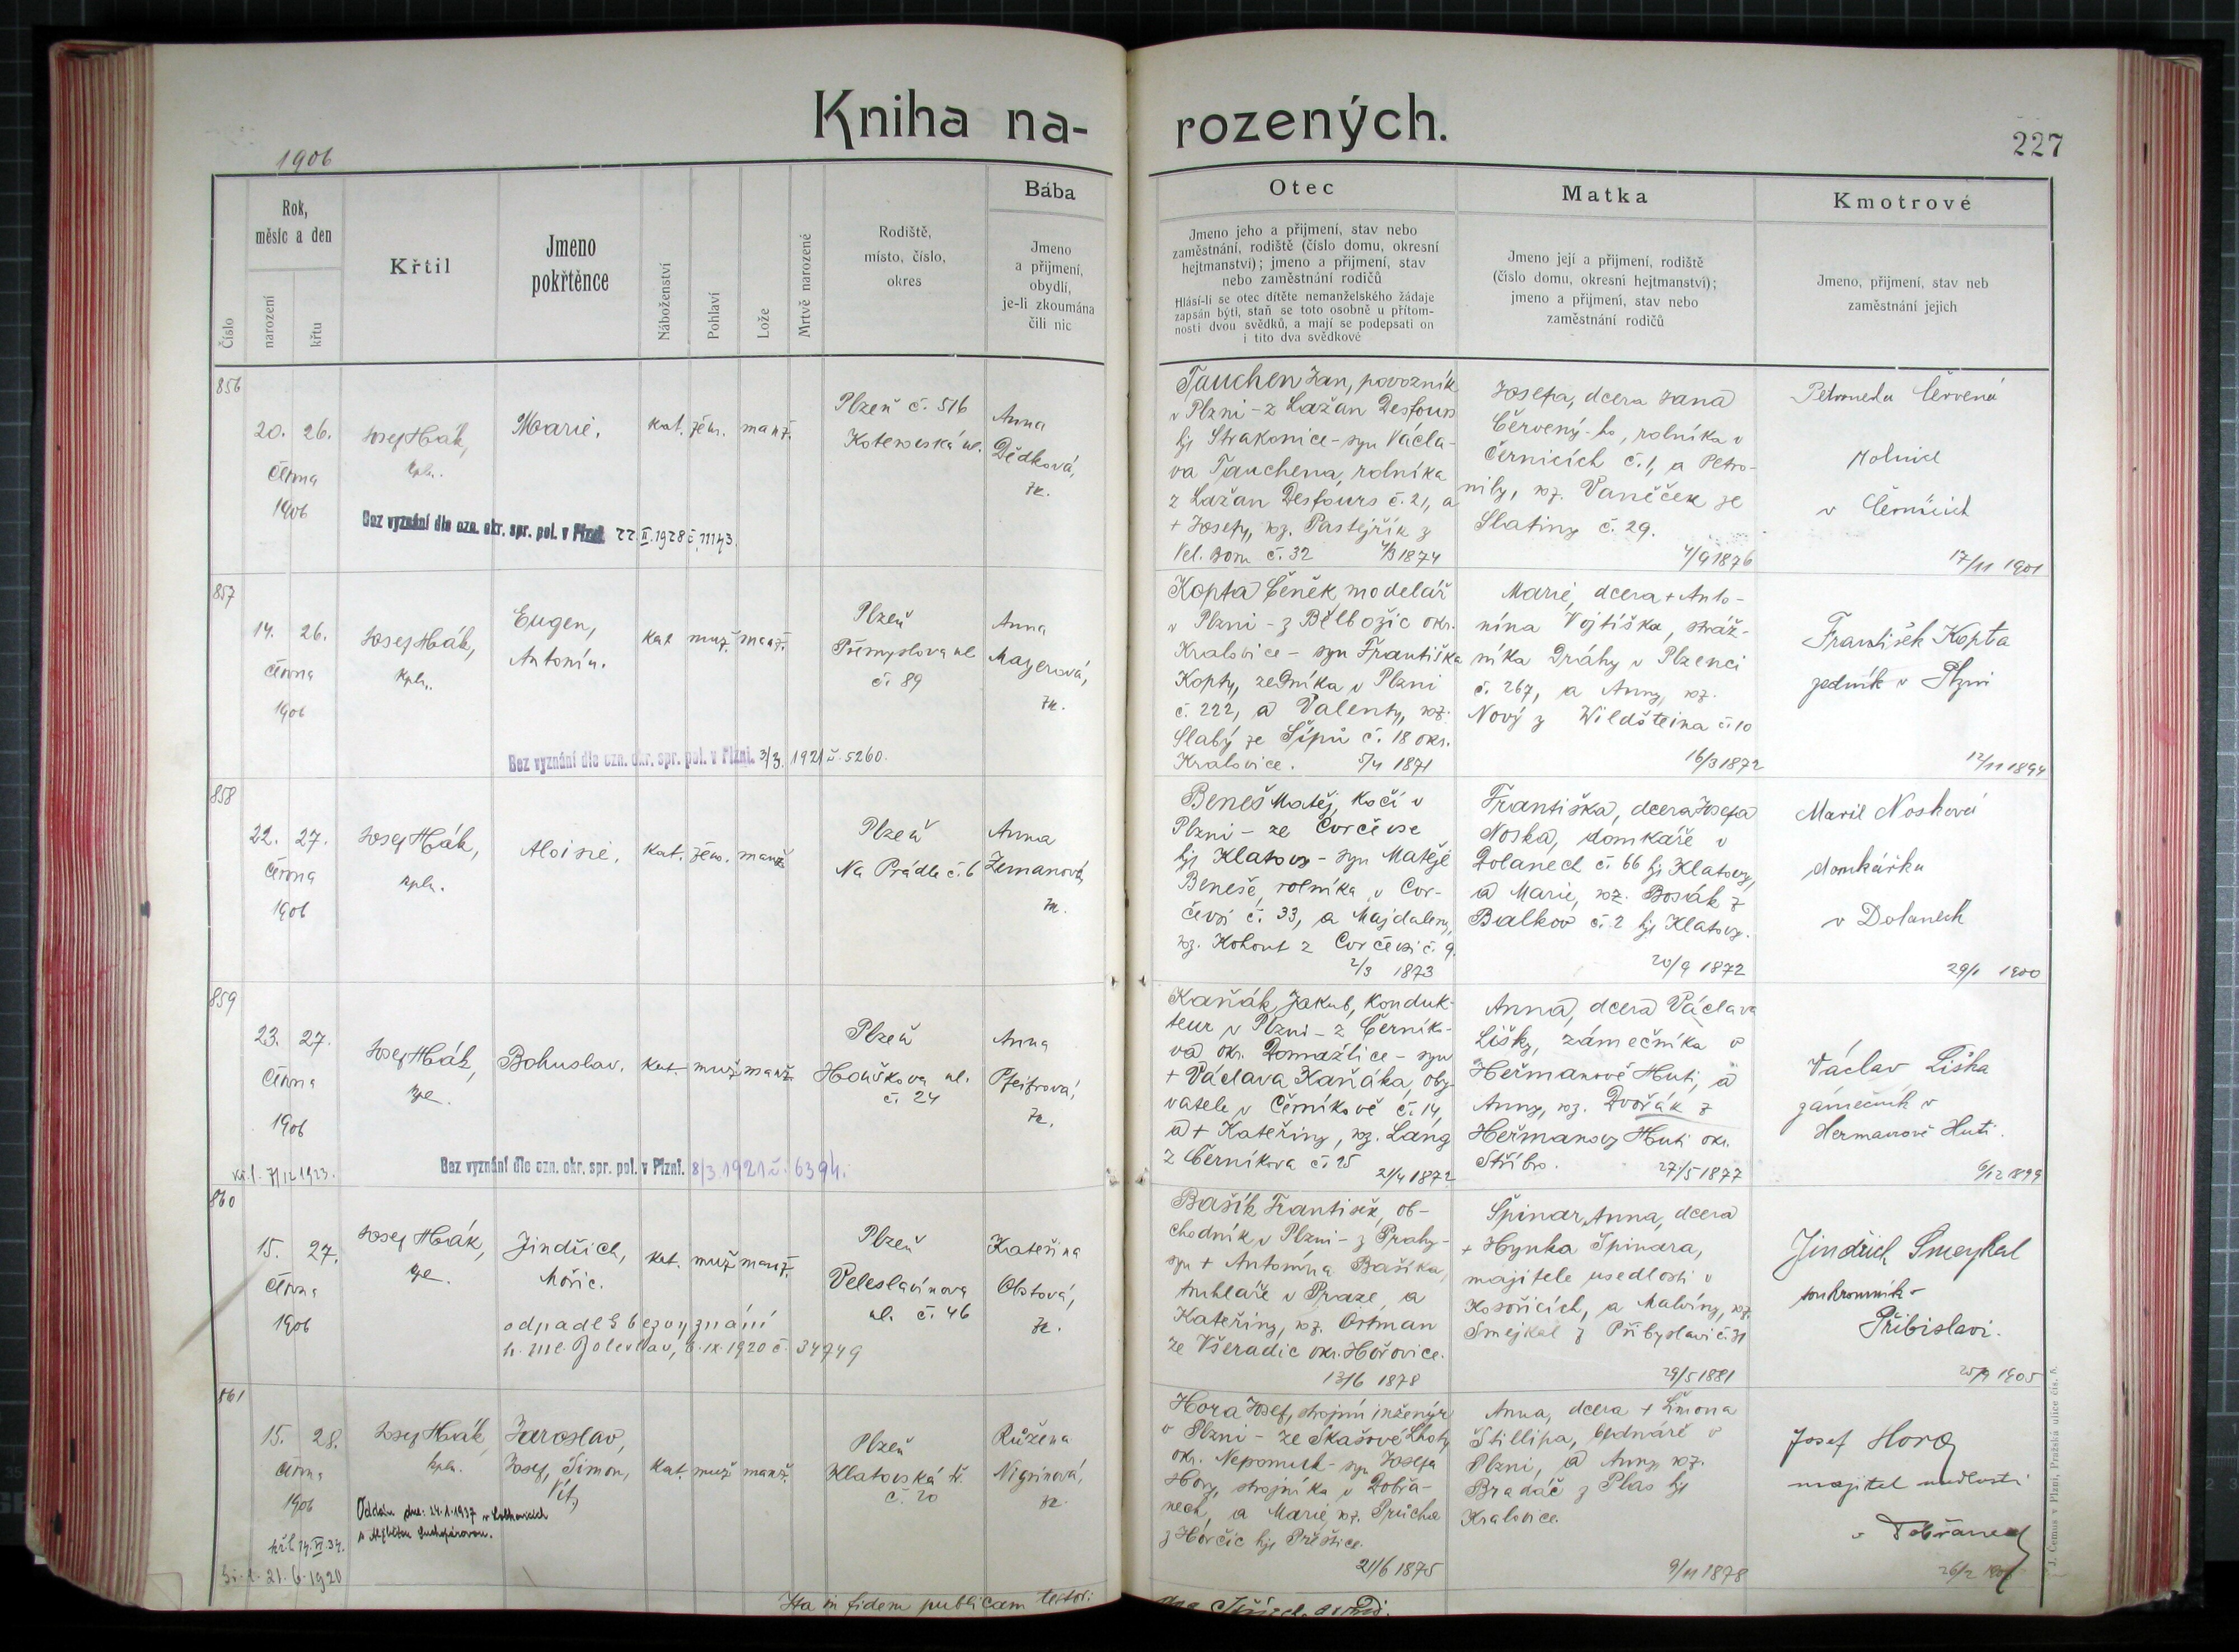 Kniha na-
rozených.
1906
227
Rok,
měsíc a den
Číslo
narození
křtu
Křtil
Jmeno
pokřtěnce
Náboženství
Pohlaví
Lože
Mrtvě narozené
Rodiště,
místo, číslo,
okres
Bába
Jmeno
a příjmení,
obydlí,
je-li zkoumána
čili nic
Otec
Jmeno jeho a přijmení, stav nebo
zaměstnání, rodiště (číslo domu, okresní
hejtmanství); jmeno a přijmení, stav
nebo zaměstnání rodičů
Hlásí-li se otec dítěte nemanželského žádaje
zapsán býti, staň se toto osobně u přítom-
nosti dvou svědků, a mají se podepsati on
i tito dva svědkové
Matka
Jmeno její a přijmení, rodiště
(číslo domu, okresní hejtmanství);
jmeno a přijmení, stav nebo
zaměstnání rodičů
Kmotrové
Jmeno, přijmení, stav neb
zaměstnání jejich
856
20. 26.
června
1906
Josef Hák,
kpln.
Marie.
kat. žen. manž.
Plzeň č. 516
Koterovská ul.
Anna
Dědková,
zk.
Bez vyznání dle ozn. okr. spr. pol. v Plzni 22.II.1928 č. 11143.
Tauchen Jan, povozník
v Plzni - z Lažan Desfours
hj Strakonice - syn Václa-
va Tauchena, rolníka
z Lažan Desfours č. 21, a
+ Josefy, roz. Pastejřík z
Vel. Boru č. 32 4/3 1874
Josefa, dcera Jana
Červený-ho, rolníka v
Černicích č. 1, a Petro-
nily, roz. Vaněček ze
Slatiny č. 29.
4/9 1876
Petronela Červená
rolnice
v Černicích
17/11 1901
857
14. 26.
června
1906
Josef Hák,
kpln.
Eugen,
Antonín.
kat muž. manž.
Plzeň
Přemyslova ul
č. 89
Anna
Mayerová,
zk.
Bez vyznání dle ozn. okr. spr. pol. v Plzni. 3/3. 1921 č. 5260.
Kopta Čeněk, modelář
v Plzni - z Bělbožic okr.
Kralovice - syn Františka
Kopty, zedníka v Plzni
č. 222, a Valenty, roz.
Slabý ze Šípů č. 18 okr.
Kralovice. 5/4 1871
Marie, dcera + Anto-
nína Vojtíška, stráž-
níka Dráhy v Plzenci
č. 267, a Anny, roz.
Nový z Wildšteina č. 10
16/3 1872
František Kopta
zedník v Plzni
12/11 1894
858
22. 27.
června
1906
Josef Hák,
kpln.
Aloisie.
kat. žen. manž
Plzeň
Na Prádle č. 6
Anna
Zemanová,
zk.
Beneš Matěj, kočí v
Plzni - ze Cvrčevse
hj Klatovy - syn Matěje
Beneše, rolníka v Cvr-
čevsi č. 33, a Majdaleny,
roz. Kohout z Cvrčevsi č. 9.
2/3 1873
Františka, dcera Josefa
Noska, domkáře v
Dolanech č. 66 hj Klatovy,
a Marie, roz. Bosák z
Balkov č. 2 hj Klatovy.
20/9 1872
Marie Nosková
domkářka
v Dolanech
29/1 1900
859
23. 27.
června
1906
Josef Hák,
kpl.
Bohuslav.
kat. muž manž.
Plzeň
Houškova ul.
č. 24
Anna
Pfeifrová,
zk.
kř. l. 7/12 1923.
Bez vyznání dle ozn. okr. spr. pol. v Plzni. 8/3.1921 č. 6394.
Kaňák Jakub, konduk-
teur v Plzni - z Černíko-
va okr. Domažlice - syn
+ Václava Kaňáka, oby-
vatele v Černíkově č. 14,
a + Kateřiny, roz. Láng
z Černíkova č. 25
21/4 1872
Anna, dcera Václava
Lišky, zámečníka v
Heřmanově Huti, a
Anny, roz. Dvořák z
Heřmanovy Huti okr.
Stříbro. 27/5 1877
Václav Liška
zámečník v
Hermanově Huti.
6/12 1899
860
15. 27.
června
1906
Josef Hák,
kpl.
Jindřich,
Mořic.
kat. muž manž.
Plzeň
Veleslavínova
ul. č. 46
Kateřina
Obstová,
zk.
odpadl § bez vyznání
h. Ml. Boleslav, 6.IX.1920 č. 34749
Bašík František, ob-
chodník v Plzni - z Prahy -
syn + Antonína Bašíka,
truhláře v Praze, a
Kateřiny, roz. Ortman
ze Všeradic okr. Hořovice.
13/6 1878
Špinar Anna, dcera
+ Hynka Špinara,
majitele usedlosti v
Kosořicích, a Malvíny, roz.
Smejkal z Přibyslavi č. 31
29/5 1881
Jindřich Smeykal
soukromník -
Přibislavi.
25/9 1905
861
15. 28.
června
1906
Josef Hák,
kpln.
Jaroslav,
Josef, Šimon,
Vít,
kat. muž manž.
Plzeň
Klatovská tř.
č. 20
Růžena
Nigrinová,
zk.
Oddán dne 24.X.1937 v
kř. l. 14.VI.34.
21.6.1920
Hora Josef, strojní inženýr
v Plzni - ze Skašové Lhoty
okr. Nepomuk - syn Josefa
Hory, strojníka v Dobřa-
nech, a Marie, roz. Průcha
z Horčic hj Přeštice.
21/6 1875
Anna, dcera + Šimona
Štillipa, bednáře v
Plzni, a Anny, roz.
Bradáč z Plas hj
Kralovice.
9/11 1878
Josef Hora
majitel usedlosti
v Dobřanech
Ita in fidem publicam testor:
J. Černus v Plzni, Pražská ulice čís. 5.